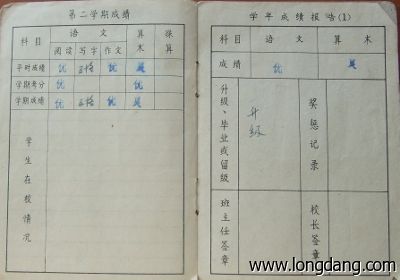 第二学期成绩
科目 语文 算术 珠算
阅读 写字 作文
平时成绩 优 优
学期考分 优 优
学期成绩 优 优 优
学生在校情况
学年成绩报告(1)
科目 语文 算术
成绩 优
升级、毕业或留级 升级 奖惩记录
班主任签章 校长签章
www.longdang.com